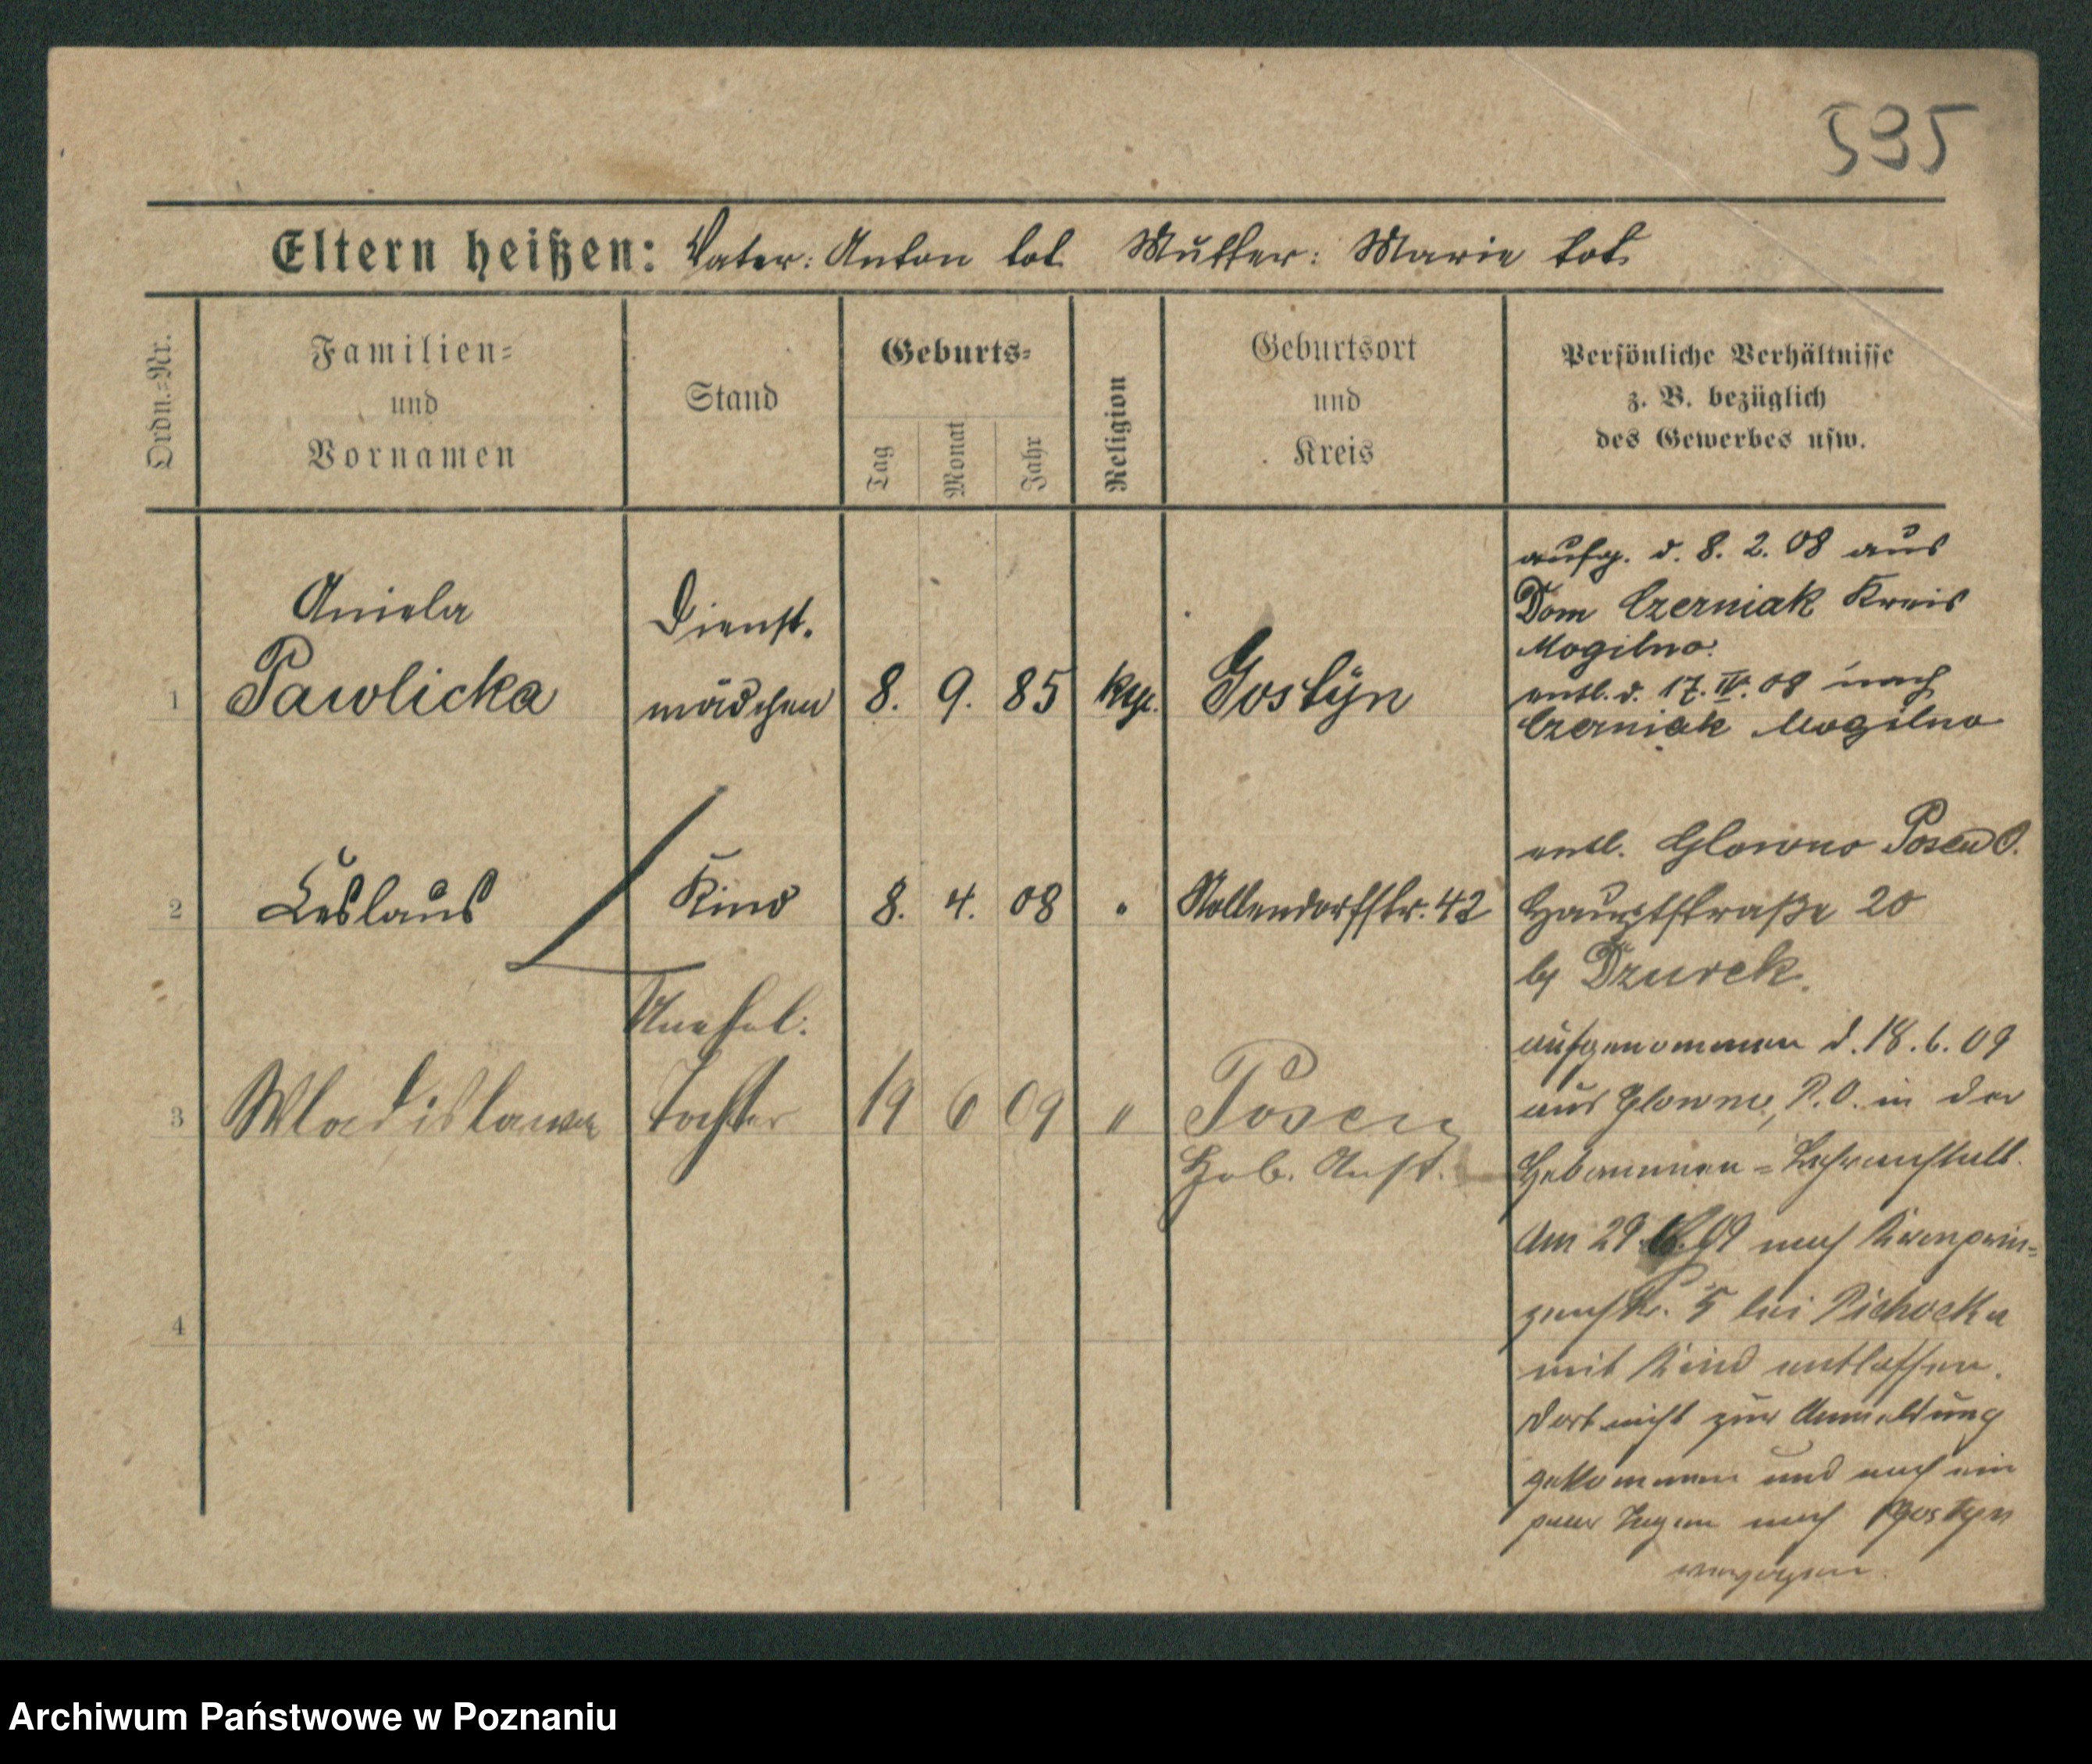 595
Eltern heißen: Vater: Anton tot Mutter: Marie tot
Ordn.-Nr.
Familien-
und
Vornamen
Stand
Geburts-
Tag
Monat
Jahr
Religion
Geburtsort
und
Kreis
Persönliche Verhältnisse
z. B. bezüglich
des Gewerbes usw.
1
Aniela
Pawlicka
Dienst.
mädchen
8. 9. 85
Gostÿn
aufg. d. 8. 2. 08 aus
Dom Czerniak Kreis
Mogilno.
entl. d. 17. IV. 08 nach
Czerniak Mogilno
2
Ceslaus
Kind
8. 4. 08
"
Nollendorfstr. 42
entl. Glowno Posen O.
Hauptstraße 20
by Dzurek.
3
Wladislawa
Unehel.
Tochter
19 6 09
"
Posen
Heb. Anst.
aufgenommen d. 18. 6. 09
aus Glowno, P. O. in der
Hebammen = Lehranstalt.
Am 29. 6. 09 nach Kronprin=
zenstr. 5 bei Pichocka
mit Kind entlassen.
Dort nicht zur Anmeldung
gekommen und nach ein
paar Tagen nach Gostyn
verzogen.
4
Archiwum Państwowe w Poznaniu